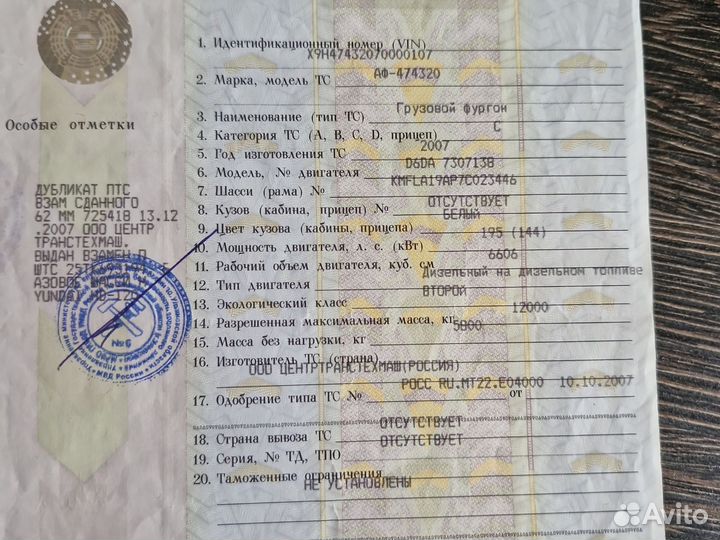 Особые отметки
ДУБЛИКАТ ПТС
ВЗАМ СДАННОГО
62 ММ 725418 13.12
.2007 ООО ЦЕНТР
ТРАНСТЕХМАШ.
ВЫДАН ВЗАМЕН П
ШТС 25
АЗОВОЕ ШАССИ
YUNDAI HD-120
№6
МВД России
1. Идентификационный номер (VIN)
X9H47432070000107
2. Марка, модель ТС АФ-474320
3. Наименование (тип ТС) Грузовой фургон
4. Категория ТС (А, В, С, D, прицеп) С
5. Год изготовления ТС 2007
6. Модель, № двигателя D6DA 7307138
7. Шасси (рама) № KMFLA19AP7C023446
8. Кузов (кабина, прицеп) № ОТСУТСТВУЕТ
9. Цвет кузова (кабины, прицепа) БЕЛЫЙ
10. Мощность двигателя, л. с. (кВт) 195 (144)
11. Рабочий объем двигателя, куб. см 6606
12. Тип двигателя Дизельный на дизельном топливе
13. Экологический класс ВТОРОЙ
14. Разрешенная максимальная масса, кг 12000
15. Масса без нагрузки, кг 5800
16. Изготовитель ТС (страна)
ООО ЦЕНТРТРАНСТЕХМАШ(РОССИЯ)
17. Одобрение типа ТС № РОСС RU.МТ22.Е04000 от 10.10.2007
18. Страна вывоза ТС ОТСУТСТВУЕТ
19. Серия, № ТД, ТПО ОТСУТСТВУЕТ
20. Таможенные ограничения
НЕ УСТАНОВЛЕНЫ
Avito